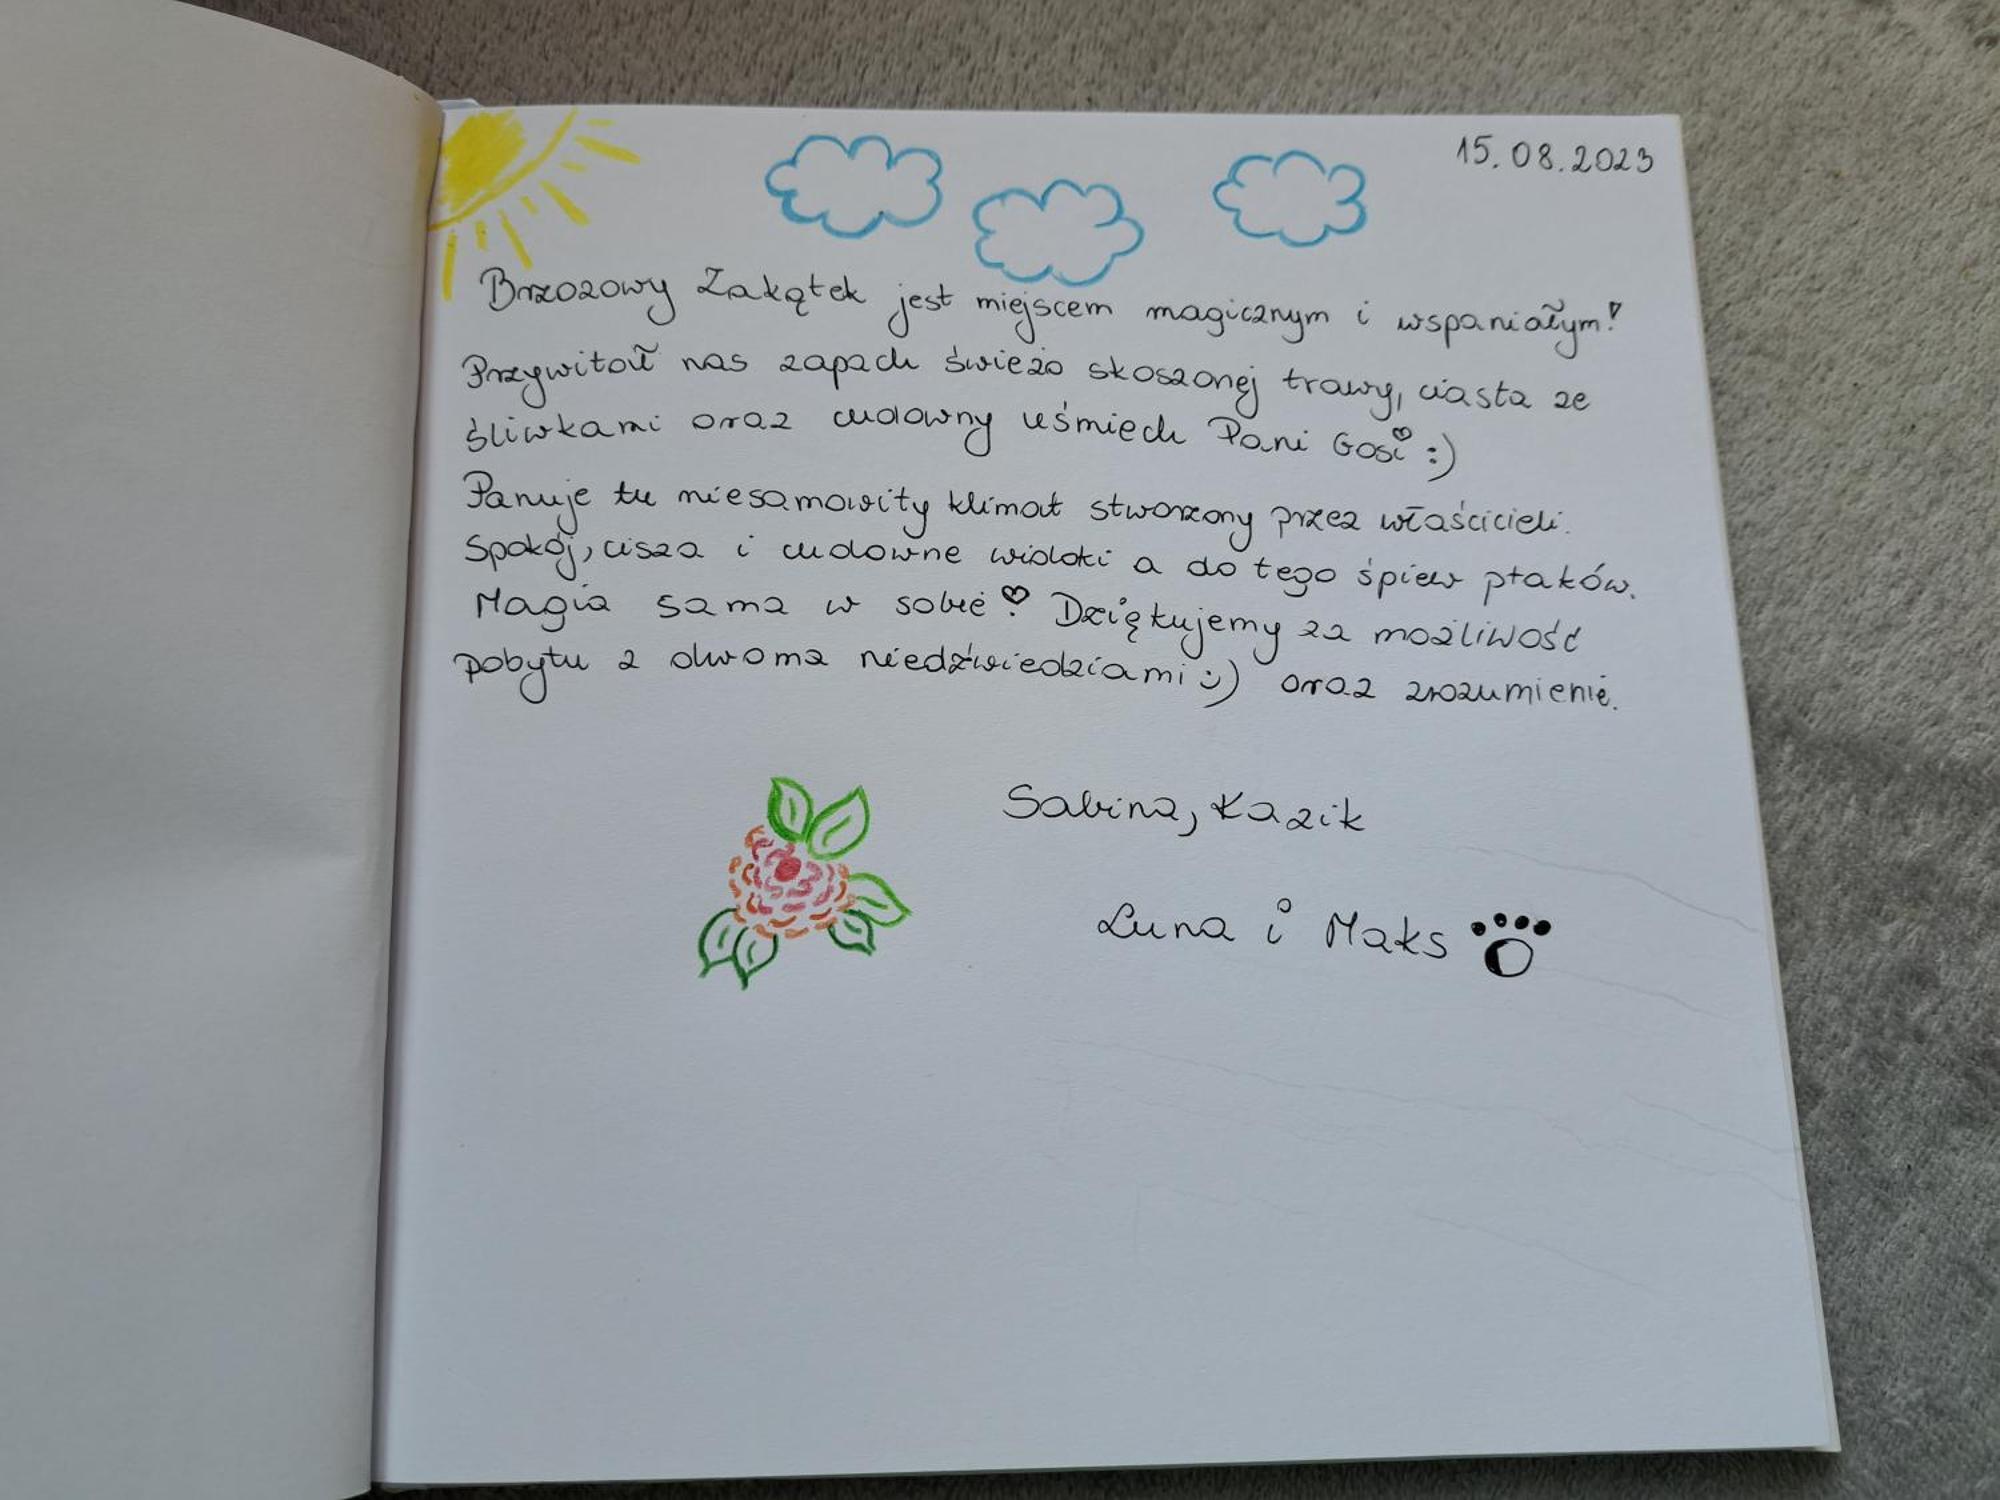 15.08.2023
Brzozowy Zakątek jest miejscem magicznym i wspaniałym!
Przywitał nas zapach świeżo skoszonej trawy, ciasta ze
śliwkami oraz cudowny uśmiech Pani Gosi :)
Panuje tu niesamowity klimat stworzony przez właścicieli.
Spokój, cisza i cudowne widoki a do tego śpiew ptaków.
Magia sama w sobie! Dziękujemy za możliwość
pobytu z dwoma niedźwiedziami :) oraz zrozumienie.
Sabina, Kazik
Luna i Maks